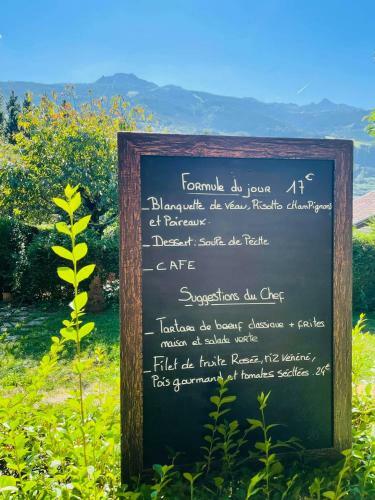 Formule du jour 17€
- Blanquette de veau, Risotto champignons
et Poireaux.
- Dessert: soupe de Pêche
- CAFE
Suggestions du Chef
- Tartare de boeuf classique + frites
maison et salade verte
- Filet de truite Rosée, riz vénéré,
Pois gourmand et tomates séchées. 24€